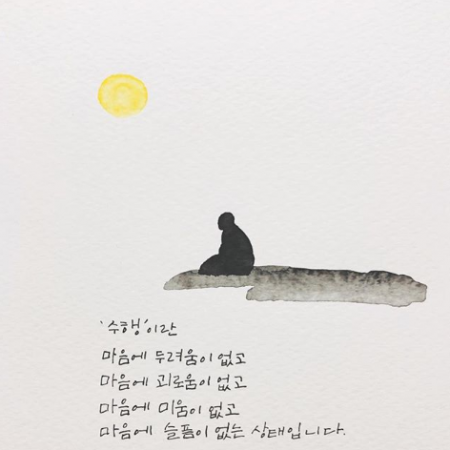 '수행'이란
마음에 두려움이 없고
마음에 괴로움이 없고
마음에 미움이 없고
마음에 슬픔이 없는 상태입니다.